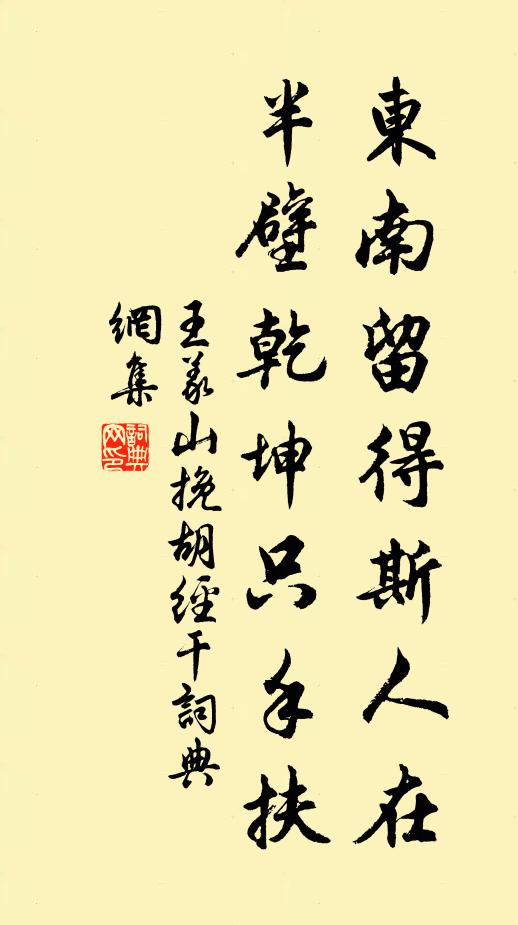 東南留得斯人在
半壁乾坤只手扶
王義山挽胡經干詞典
網集
詞典網印